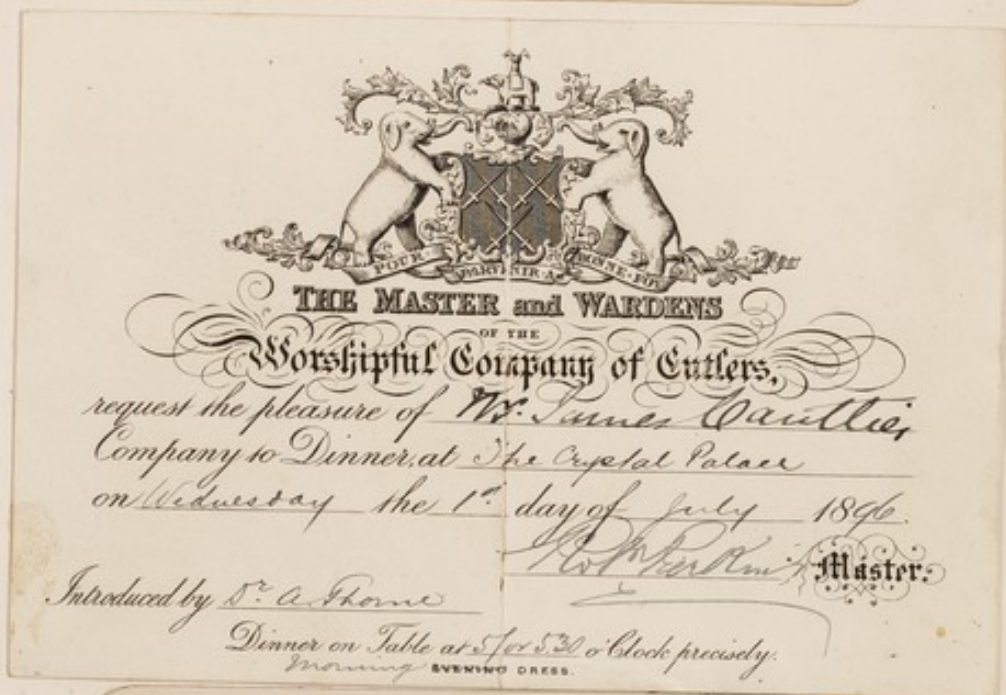 POUR PARVENIR A BONNE FOY
THE MASTER and WARDENS
OF THE
Worshipful Company of Cutlers,
request the pleasure of Mr. James
Company to Dinner, at The Crystal Palace
on Wednesday the 1st day of July 1896.
Master.
Introduced by Dr. A. Thorne
Dinner on Table at 5 for 5.30 o'Clock precisely.
Morning EVENING DRESS.